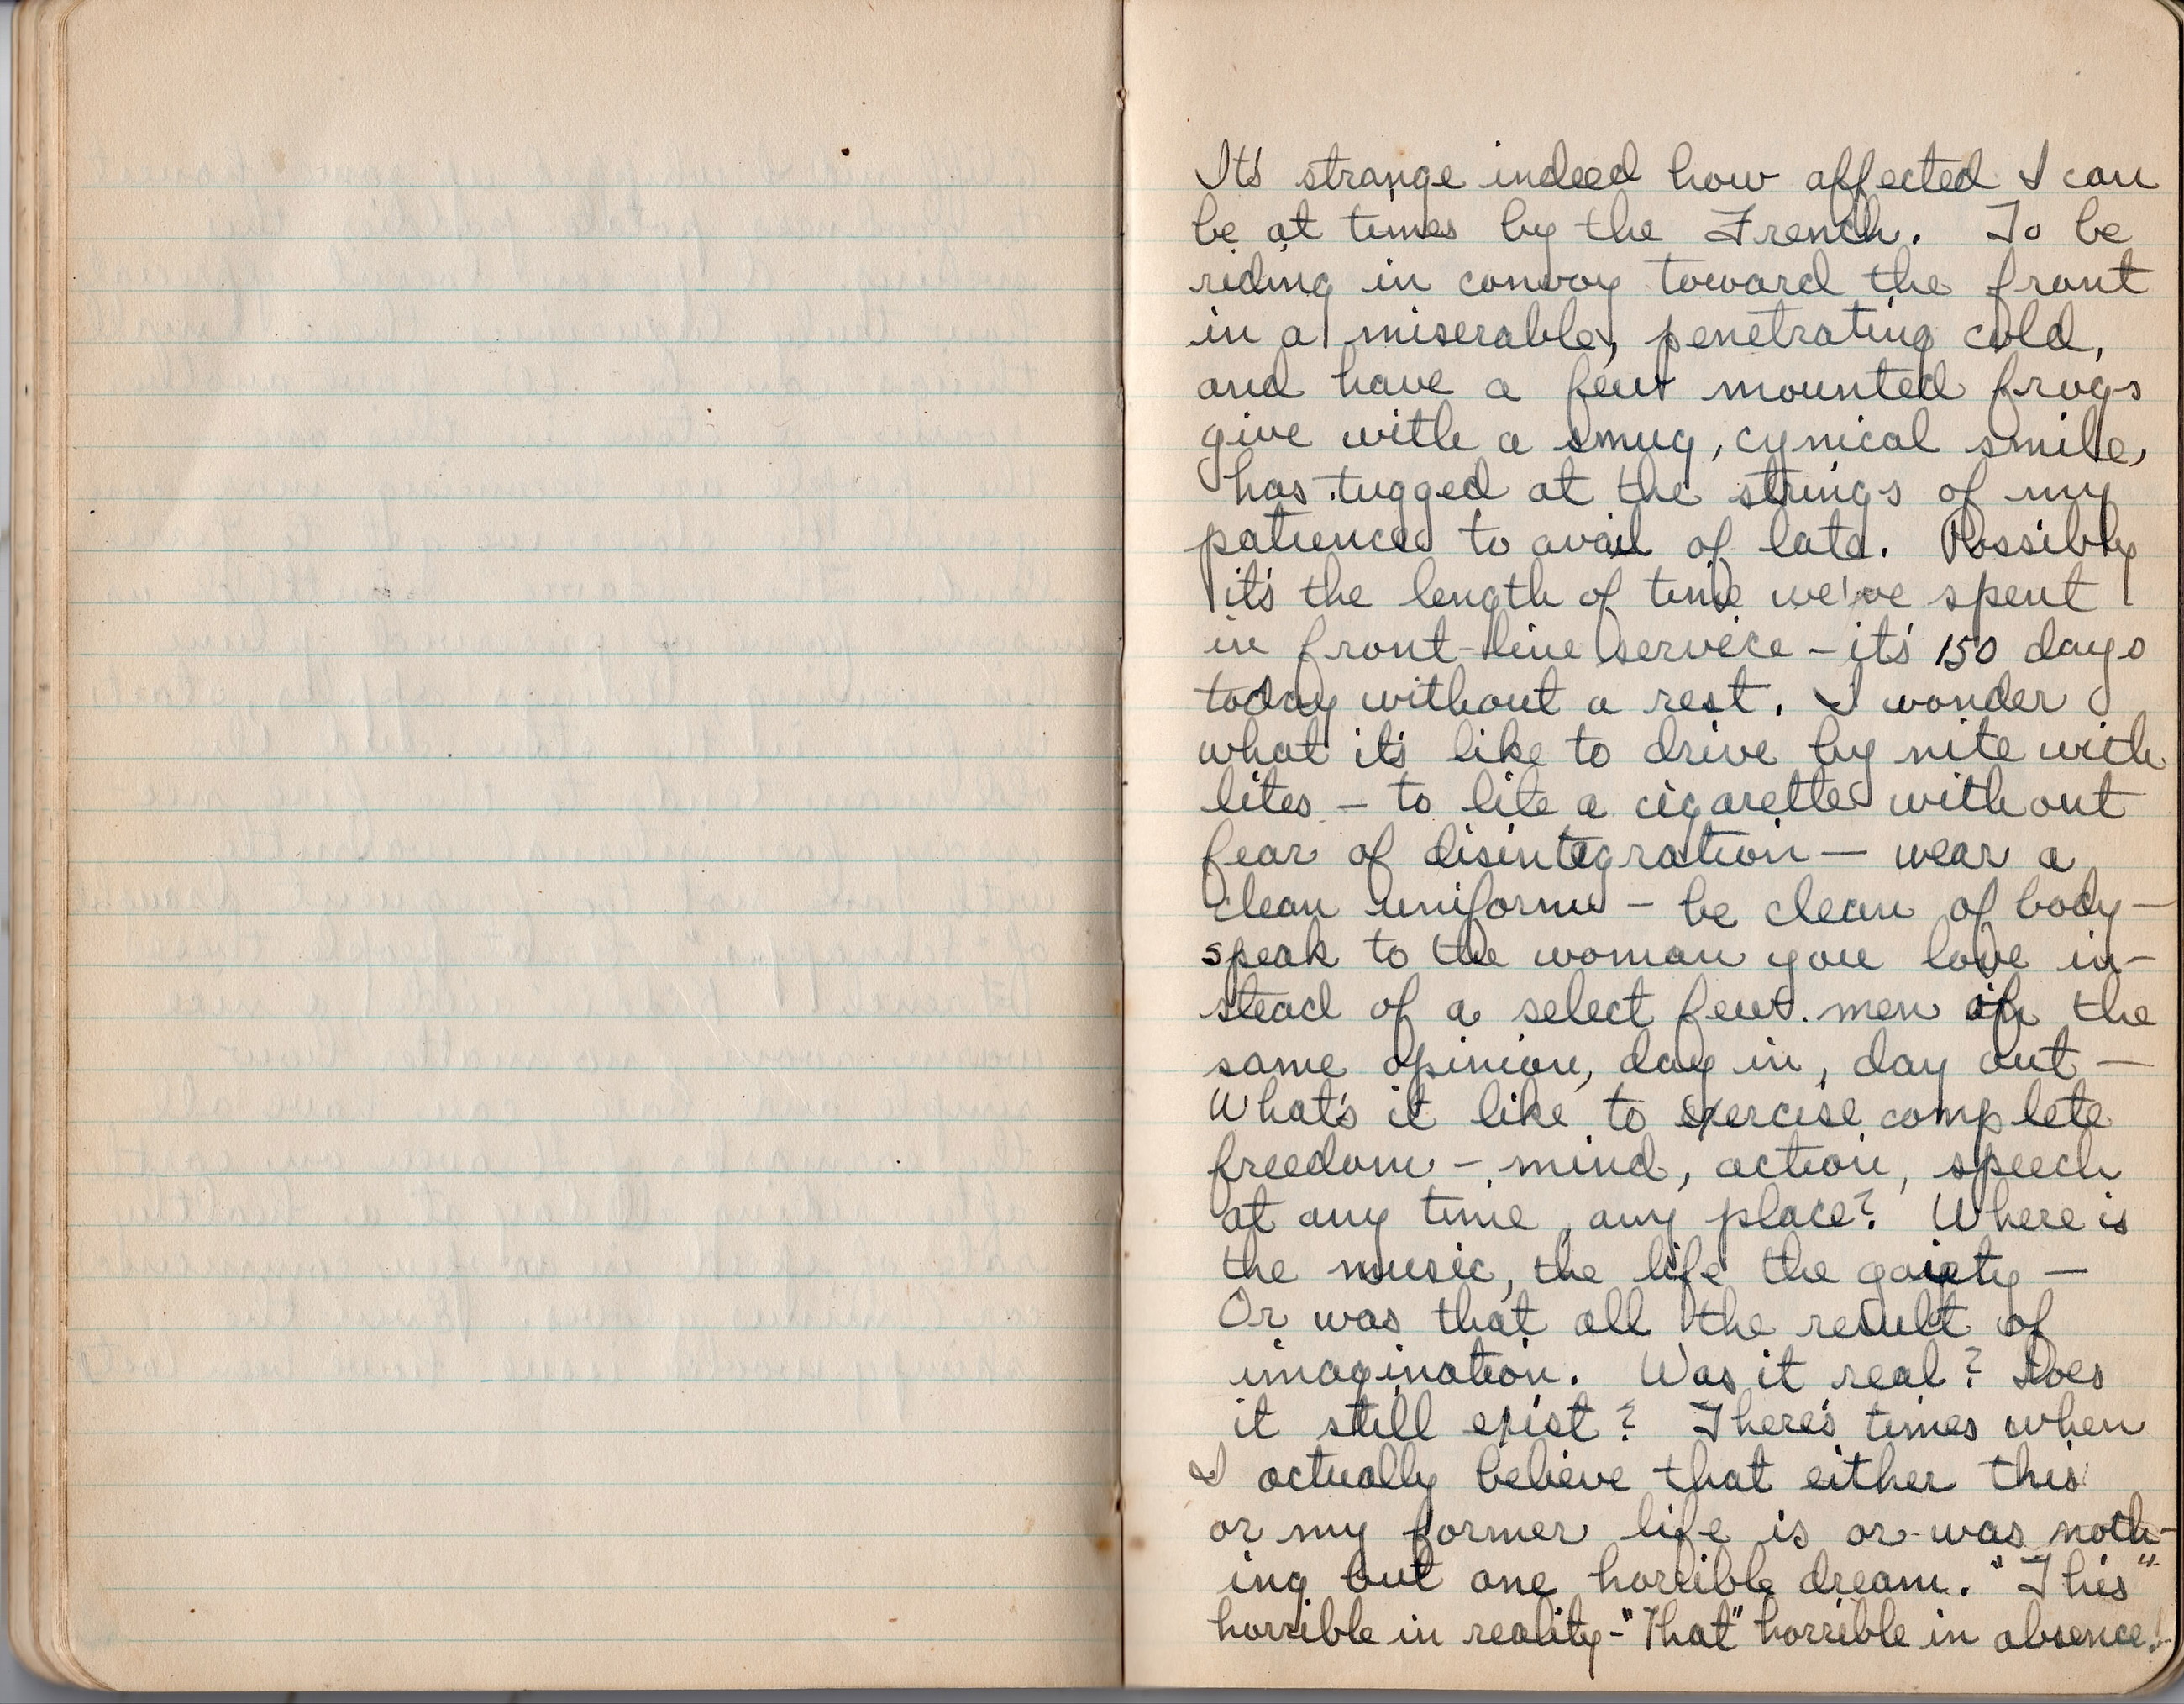 It's strange indeed how affected I can
be at times by the French. To be
riding in convoy toward the front
in a miserable, penetrating cold,
and have a few mounted frogs
give with a smug, cynical smile,
has tugged at the strings of my
patience to avail of late. Possibly
it's the length of time we've spent
in front-line service – it's 150 days
today without a rest. I wonder
what it's like to drive by nite with
lites – to lite a cigarette without
fear of disintegration – wear a
clean uniform – be clean of body –
speak to the woman you love in-
stead of a select few men of the
same opinion, day in, day out –
What's it like to exercise complete
freedom – mind, action, speech
at any time, any place? Where is
the music, the life the gaiety –
Or was that all the result of
imagination. Was it real? Does
it still exist? There's times when
I actually believe that either this
or my former life is or was noth-
ing but one horrible dream. "This"
horrible in reality – "That" horrible in absence!